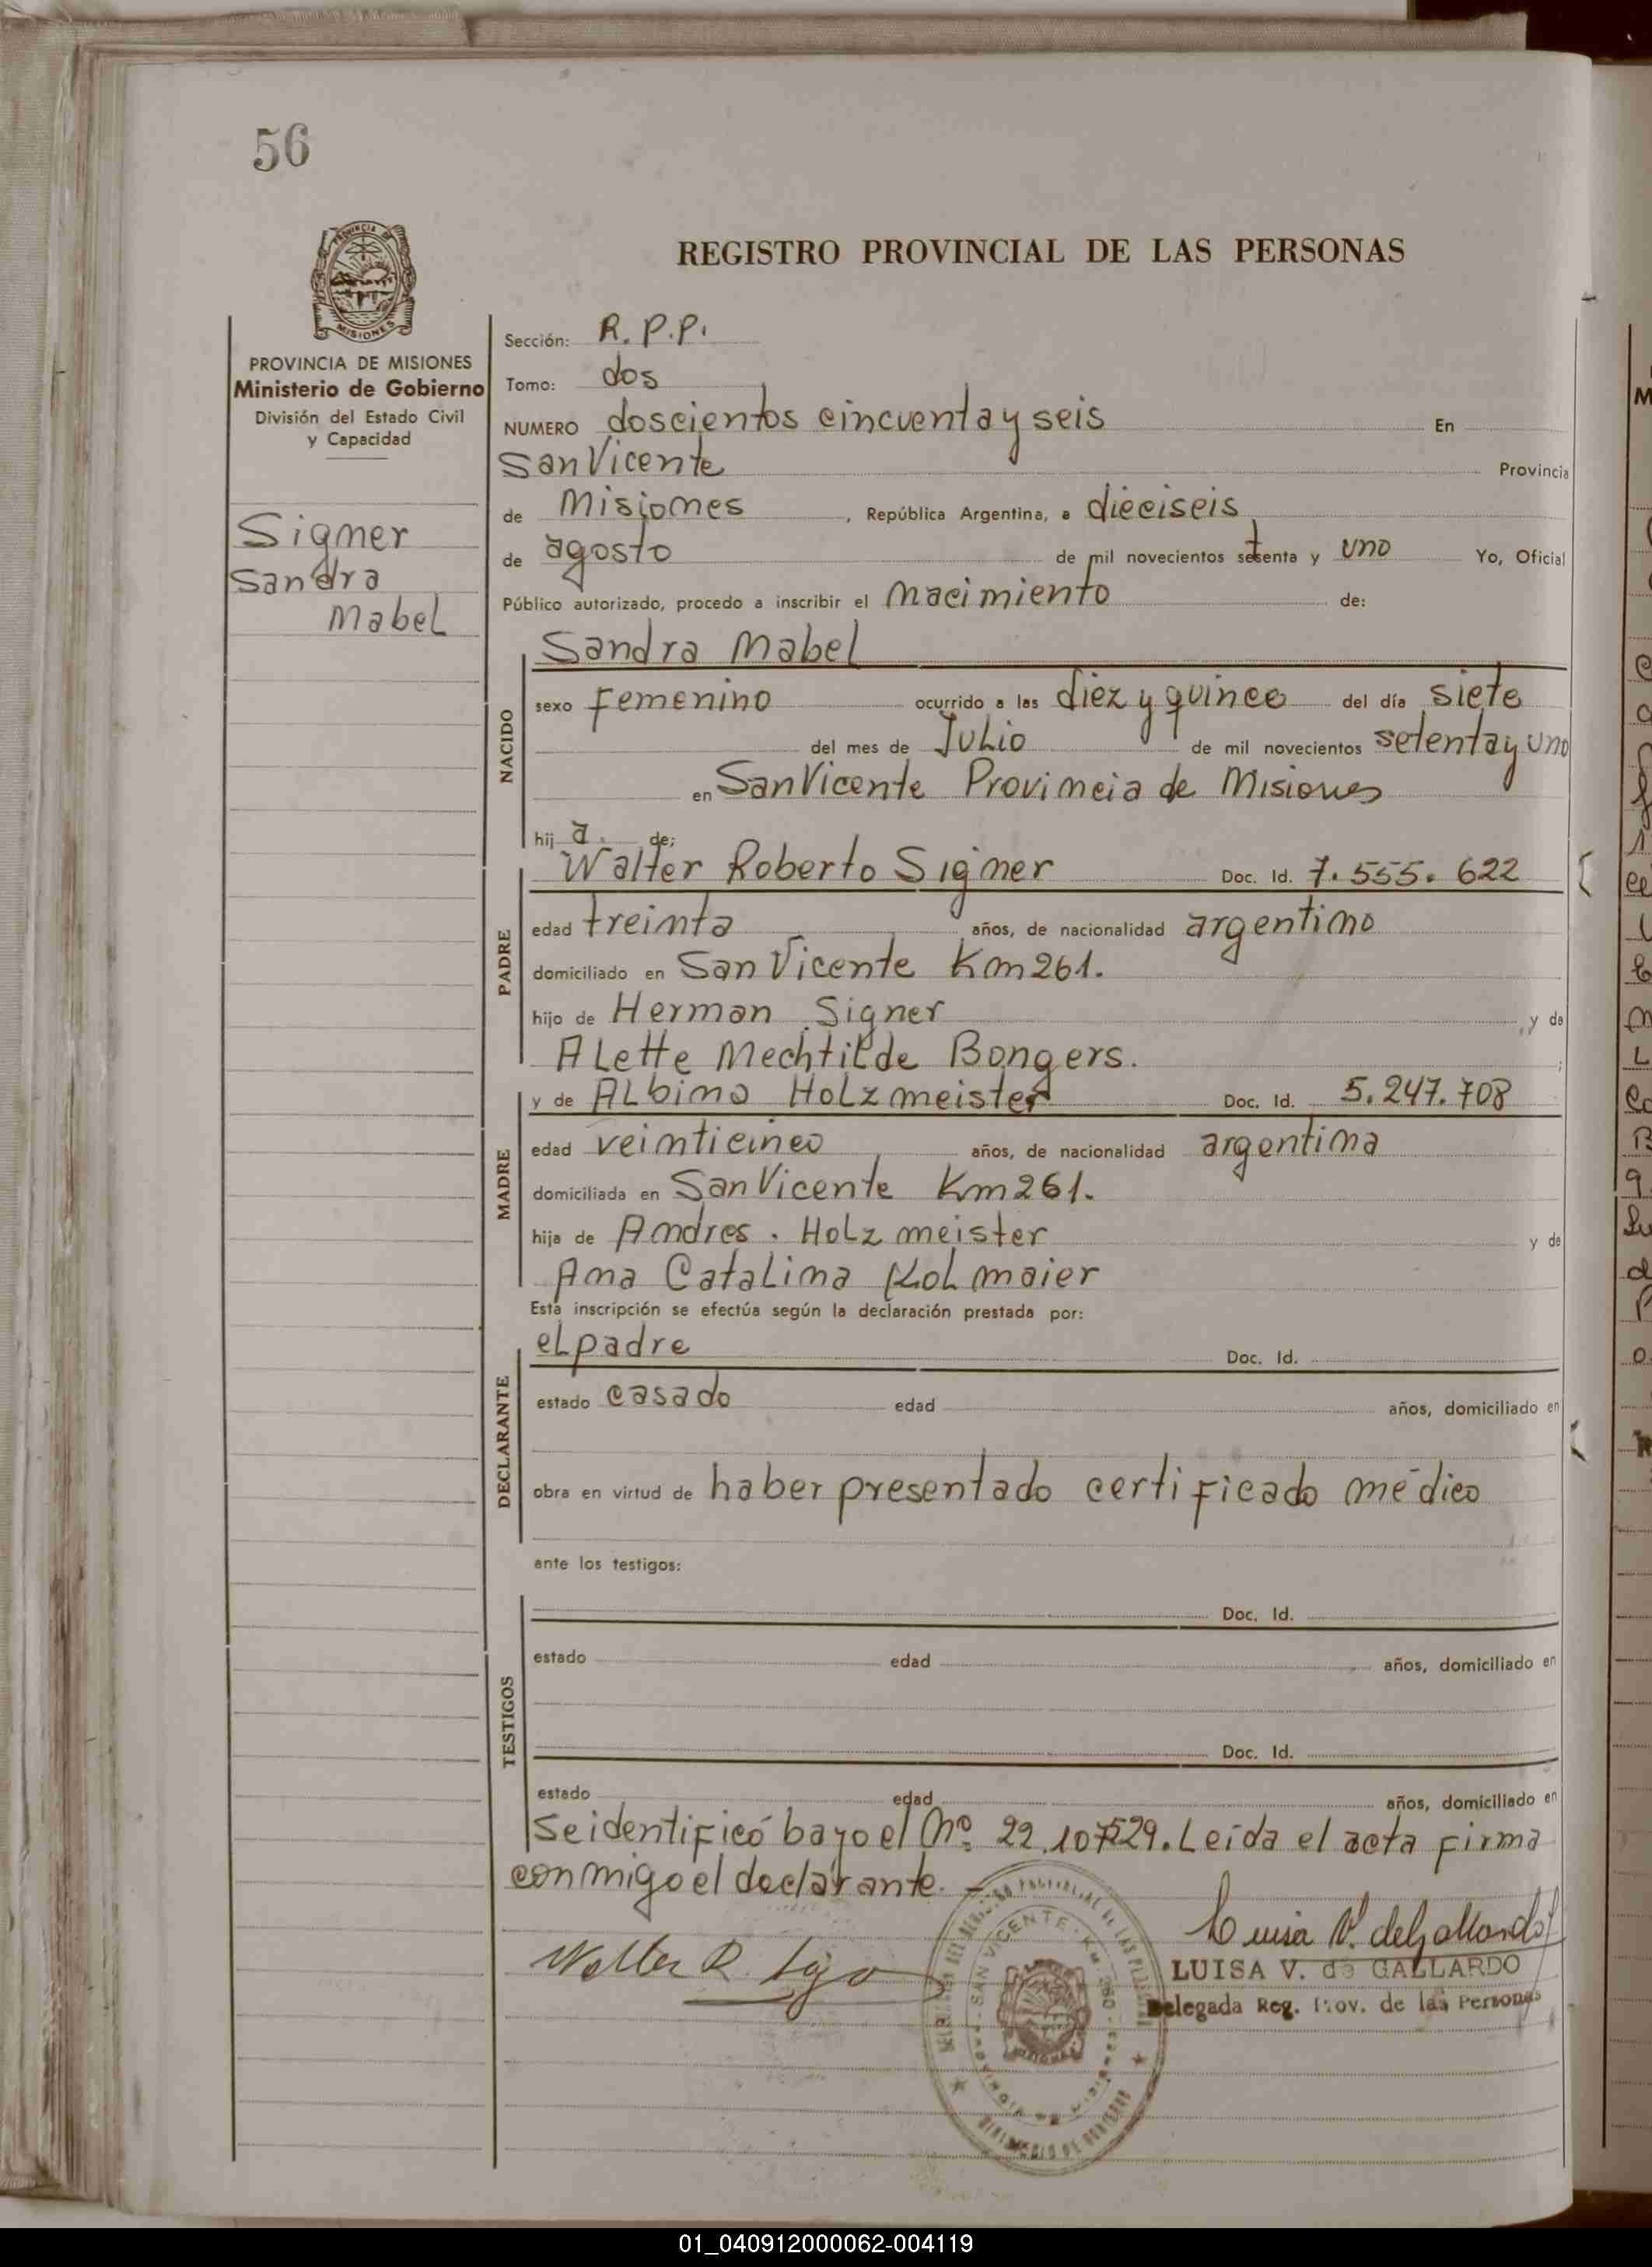 56
REGISTRO PROVINCIAL DE LAS PERSONAS
MISIONES
PROVINCIA DE MISIONES
Ministerio de Gobierno
División del Estado Civil
y Capacidad
Signer
Sandra
Mabel
Sección: R.P.P.
Tomo: dos
NUMERO doscientos cincuenta y seis En
San Vicente Provincia
de Misiones, República Argentina, a dieciseis
de agosto de mil novecientos setenta y uno Yo, Oficial
Público autorizado, procedo a inscribir el nacimiento de:
Sandra Mabel
NACIDO
sexo Femenino ocurrido a las diez y quince del día siete
del mes de Julio de mil novecientos setenta y uno
en San Vicente Provincia de Misiones
hij a. de;
PADRE
Walter Roberto Signer Doc. Id. 7.555.622
edad treinta años, de nacionalidad argentino
domiciliado en San Vicente Km 261.
hijo de Herman Signer , y de
Alette Mechtilde Bongers. ;
MADRE
y de Albina Holzmeister Doc. Id. 5.247.708
edad veinticinco años, de nacionalidad argentina
domiciliada en San Vicente Km 261.
hija de Andres . Holzmeister y de
Ana Catalina Kolmaier
Esta inscripción se efectúa según la declaración prestada por:
DECLARANTE
el padre Doc. Id.
estado casado edad años, domiciliado en
obra en virtud de haber presentado certificado médico
ante los testigos:
TESTIGOS
Doc. Id.
estado edad años, domiciliado en
Doc. Id.
estado edad años, domiciliado en
Se identificó bajo el Nº 22.107529. Leída el acta firma
conmigo el declarante. –
Walter R.
Luisa V. de Gallardo
LUISA V. de GALLARDO
Delegada Reg. Prov. de las Personas
SAN VICENTE - Km. 260
MINISTERIO DE GOBIERNO
01_040912000062-004119